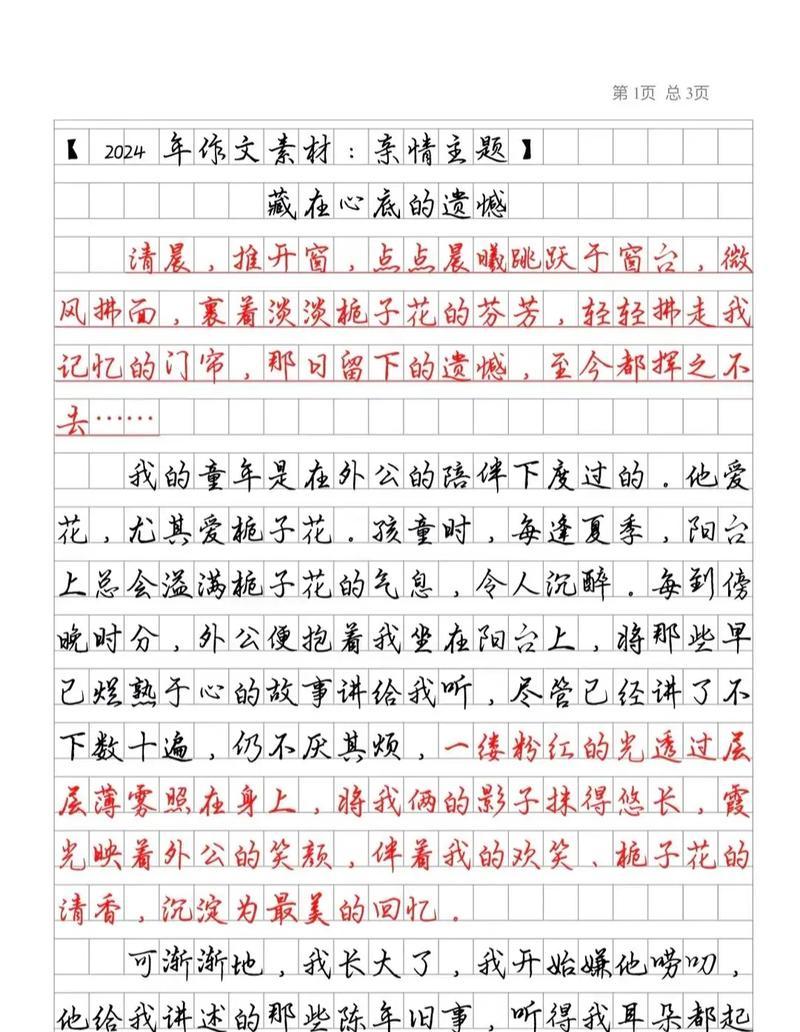 第1页 总3页
【2024年作文素材：亲情主题】
藏在心底的遗憾
清晨，推开窗，点点晨曦跳跃于窗台，微
风拂面，裹着淡淡栀子花的芬芳，轻轻拂走我
记忆的门帘，那日留下的遗憾，至今都挥之不
去……
我的童年是在外公的陪伴下度过的。他爱
花，尤其爱栀子花。孩童时，每逢夏季，阳台
上总会溢满栀子花的气息，令人沉醉。每到傍
晚时分，外公便抱着我坐在阳台上，将那些早
已烂熟于心的故事讲给我听，尽管已经讲了不
下数十遍，仍不厌其烦，一缕粉红的光透过层
层薄雾照在身上，将我俩的影子抹得悠长，霞
光映着外公的笑颜，伴着我的欢笑、栀子花的
清香，沉淀为最美的回忆。
可渐渐地，我长大了，我开始嫌他唠叨，
他给我讲述的那些陈年旧事，听得我耳朵都起